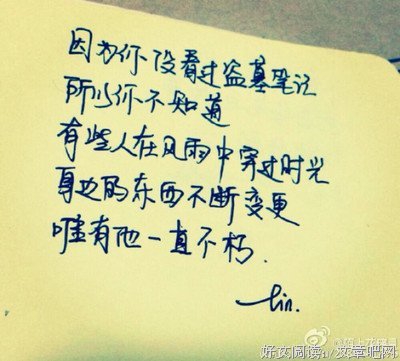 因为你没看过盗墓笔记
所以你不知道
有些人在风雨中穿过时光
身边的东西不断变更
唯有他一直不朽.
Lin.
好文阅读:/文章吧网